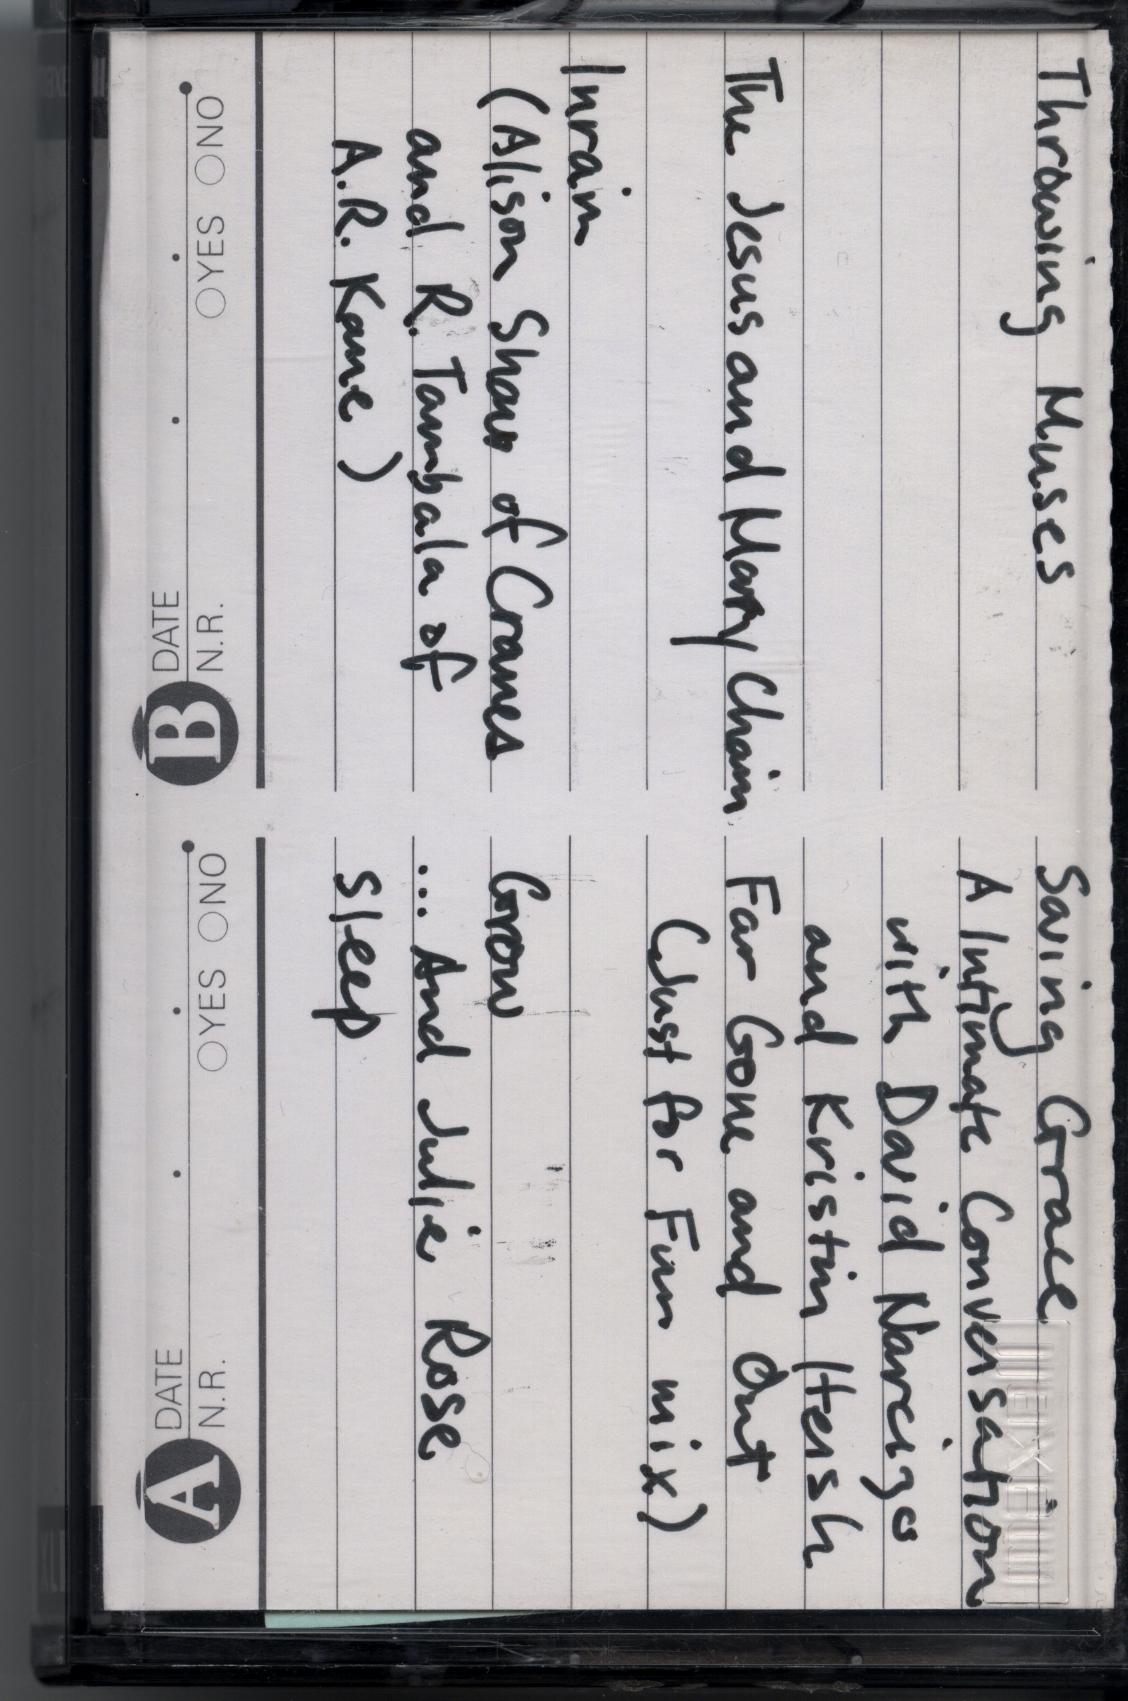 Throwing Muses Saving Grace
A Intimate Conversation
with David Narcizo
and Kristin Hersh
The Jesus and Mary Chain Far Gone and Out
(Just for Fun mix)
Inrain
(Alison Shaw of Cranes Grow
and R. Tambala of ... And Julie Rose
A.R. Kane) Sleep
A DATE
N.R. YES NO
B DATE
N.R. YES NO
maxell